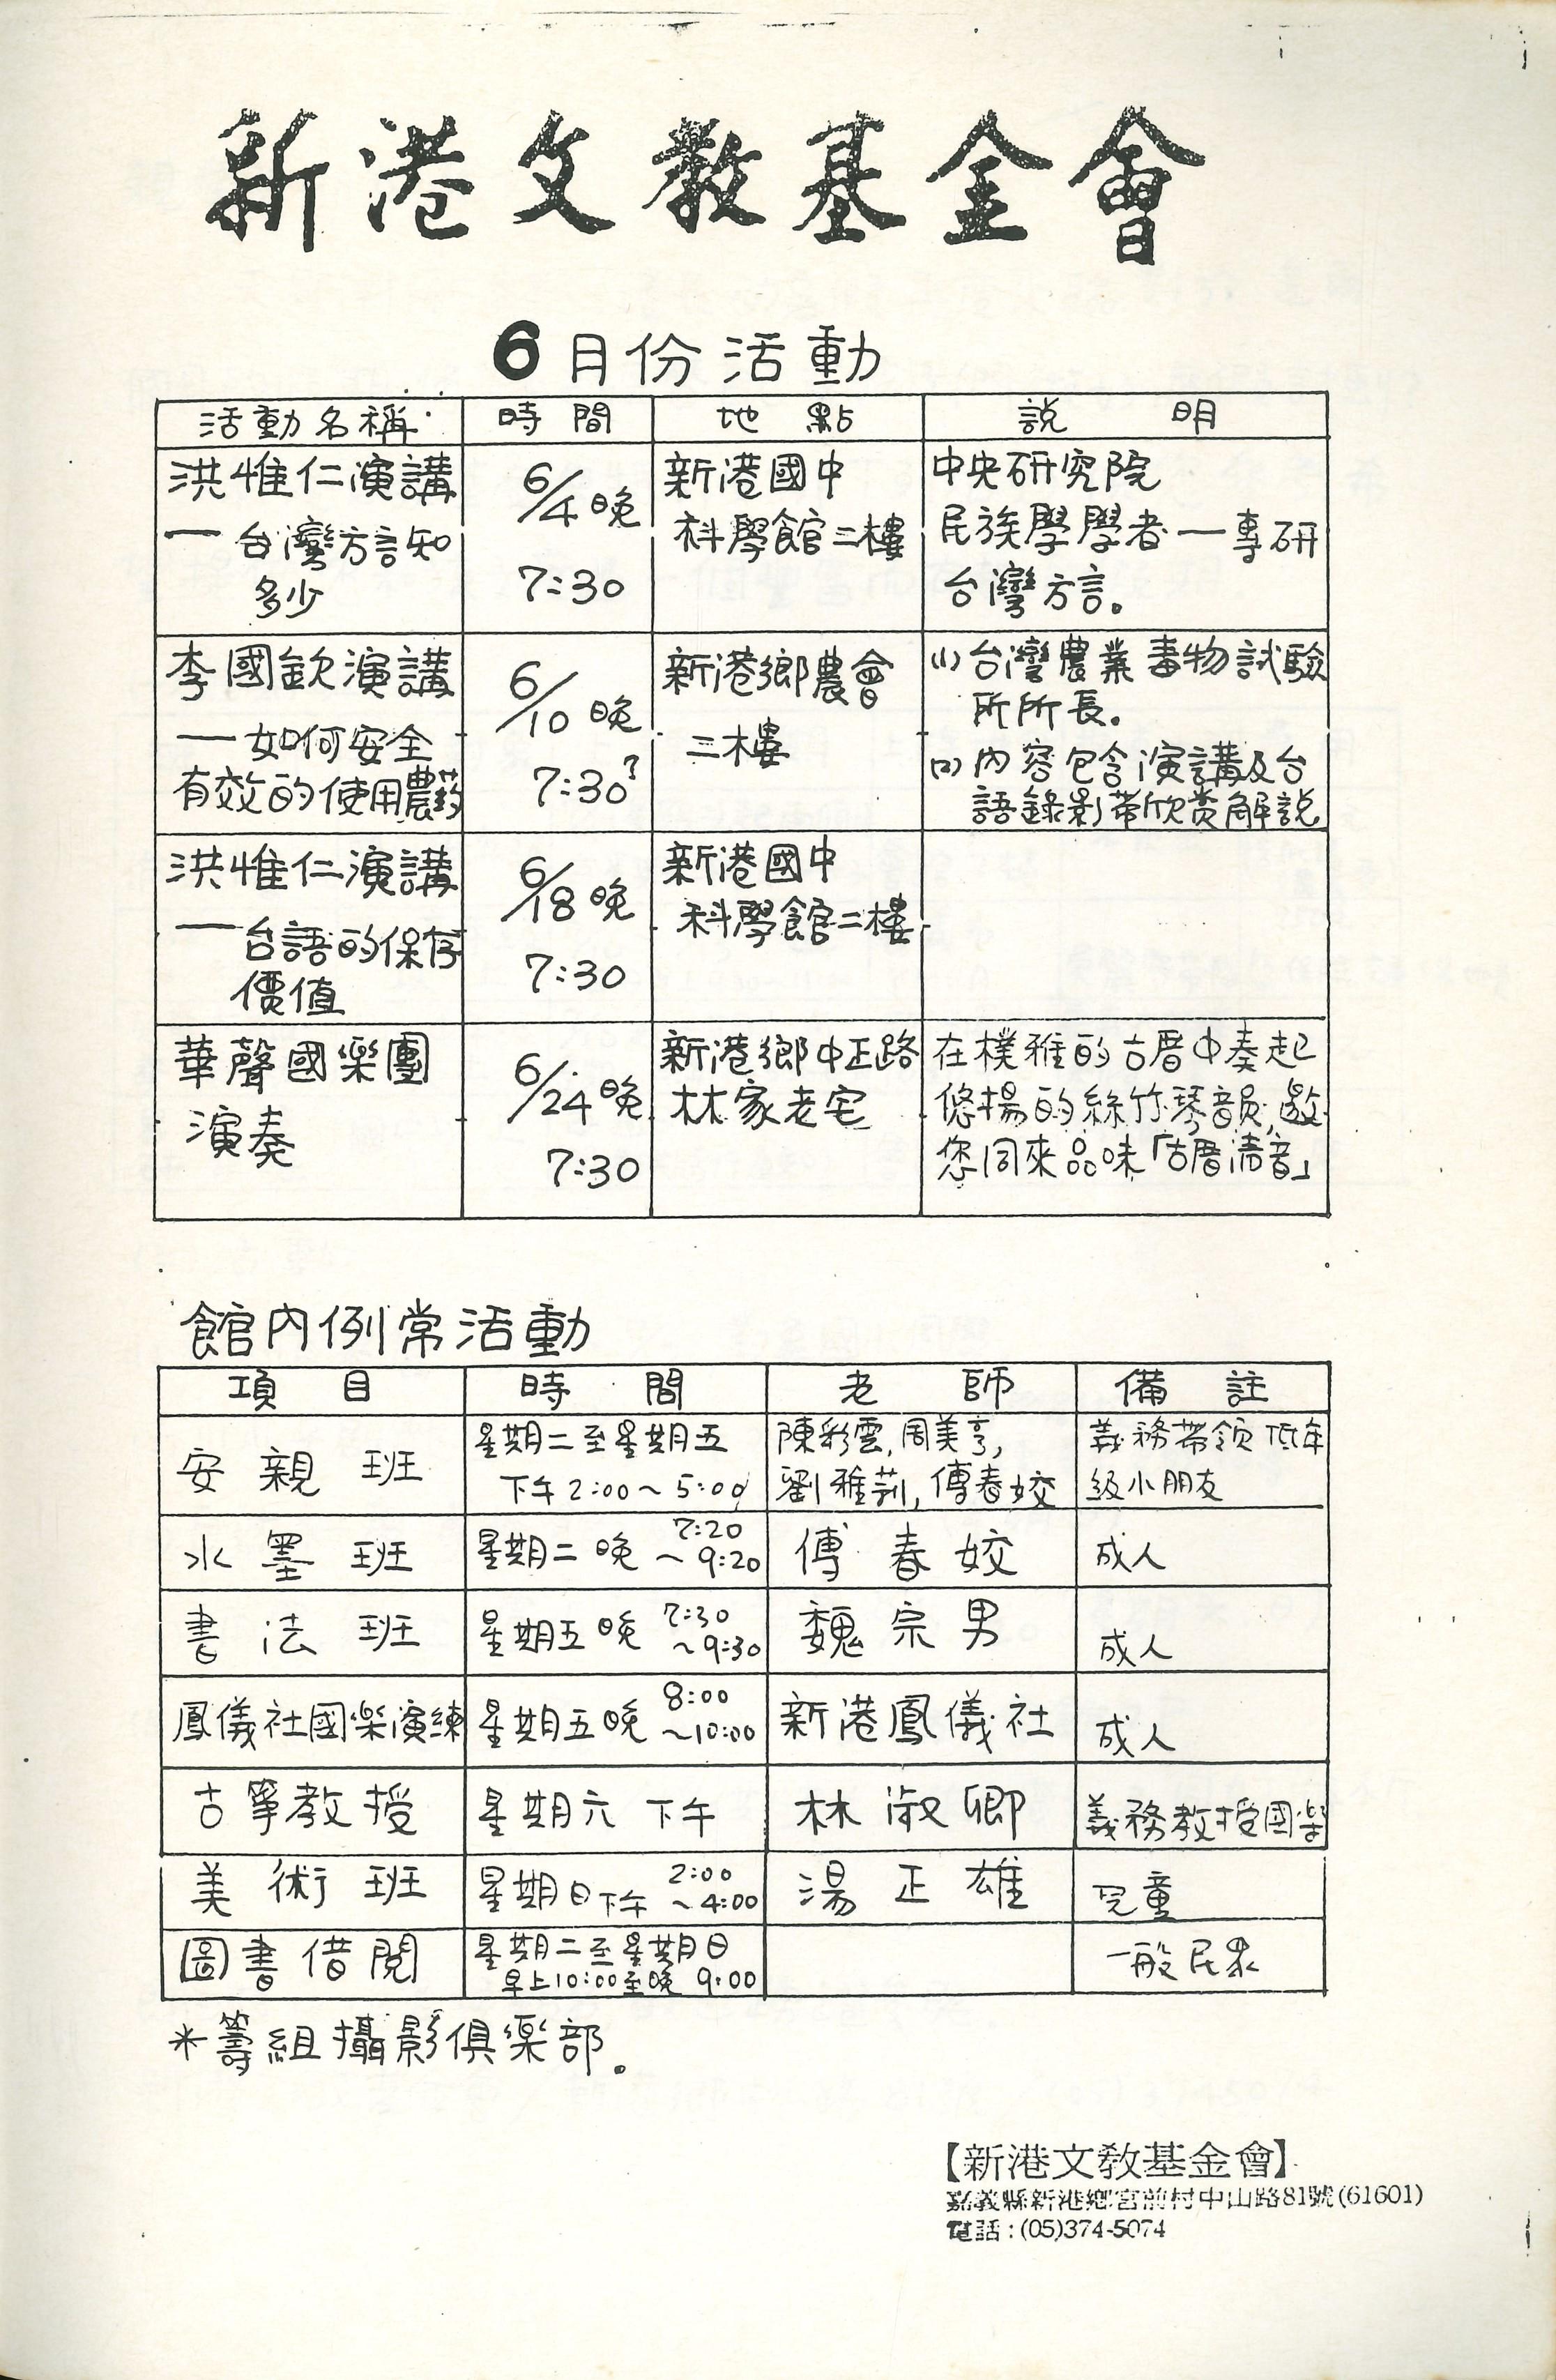 新港文教基金會
6月份活動
活動名稱 時間 地點 說明
洪惟仁演講
—台灣方言知
多少
6/4晚
7:30
新港國中
科學館二樓
中央研究院
民族學學者—專研
台灣方言。
李國欽演講
—如何安全
有效的使用農葯
6/10晚
7:30
新港鄉農會
三樓
(1)台灣農業毒物試驗
所所長。
(2)內容包含演講及台
語錄影帶欣赏解說
洪惟仁演講
—台語的保存
價值
6/18晚
7:30
新港國中
科學館二樓
華聲國樂團
演奏
6/24晚
7:30
新港鄉中正路
林家老宅
在樸雅的古厝中奏起
悠揚的絲竹琴韻,邀
您同來品味「古厝清音」
館內例常活動
項目 時間 老師 備註
安親班
星期二至星期五
下午2:00~5:00
陳彩雲,周美亨,
劉雅莿,傅春姣
義務帶领低年
級小朋友
水墨班 星期二晚 7:20
~9:20
傅春姣 成人
書法班 星期五晚 7:30
~9:30
魏宗男 成人
鳳儀社國樂演練 星期五晚 8:00
~10:00
新港鳳儀社 成人
古箏教授 星期六 下午 林淑卿 義務教授國樂
美術班 星期日下午 2:00
~4:00
湯正雄 兒童
圖書借閱 星期二至星期日
早上10:00至晚9:00
一般民眾
*籌組攝影俱樂部。
【新港文教基金會】
嘉義縣新港鄉宮前村中山路81號(61601)
電話:(05)374-5074